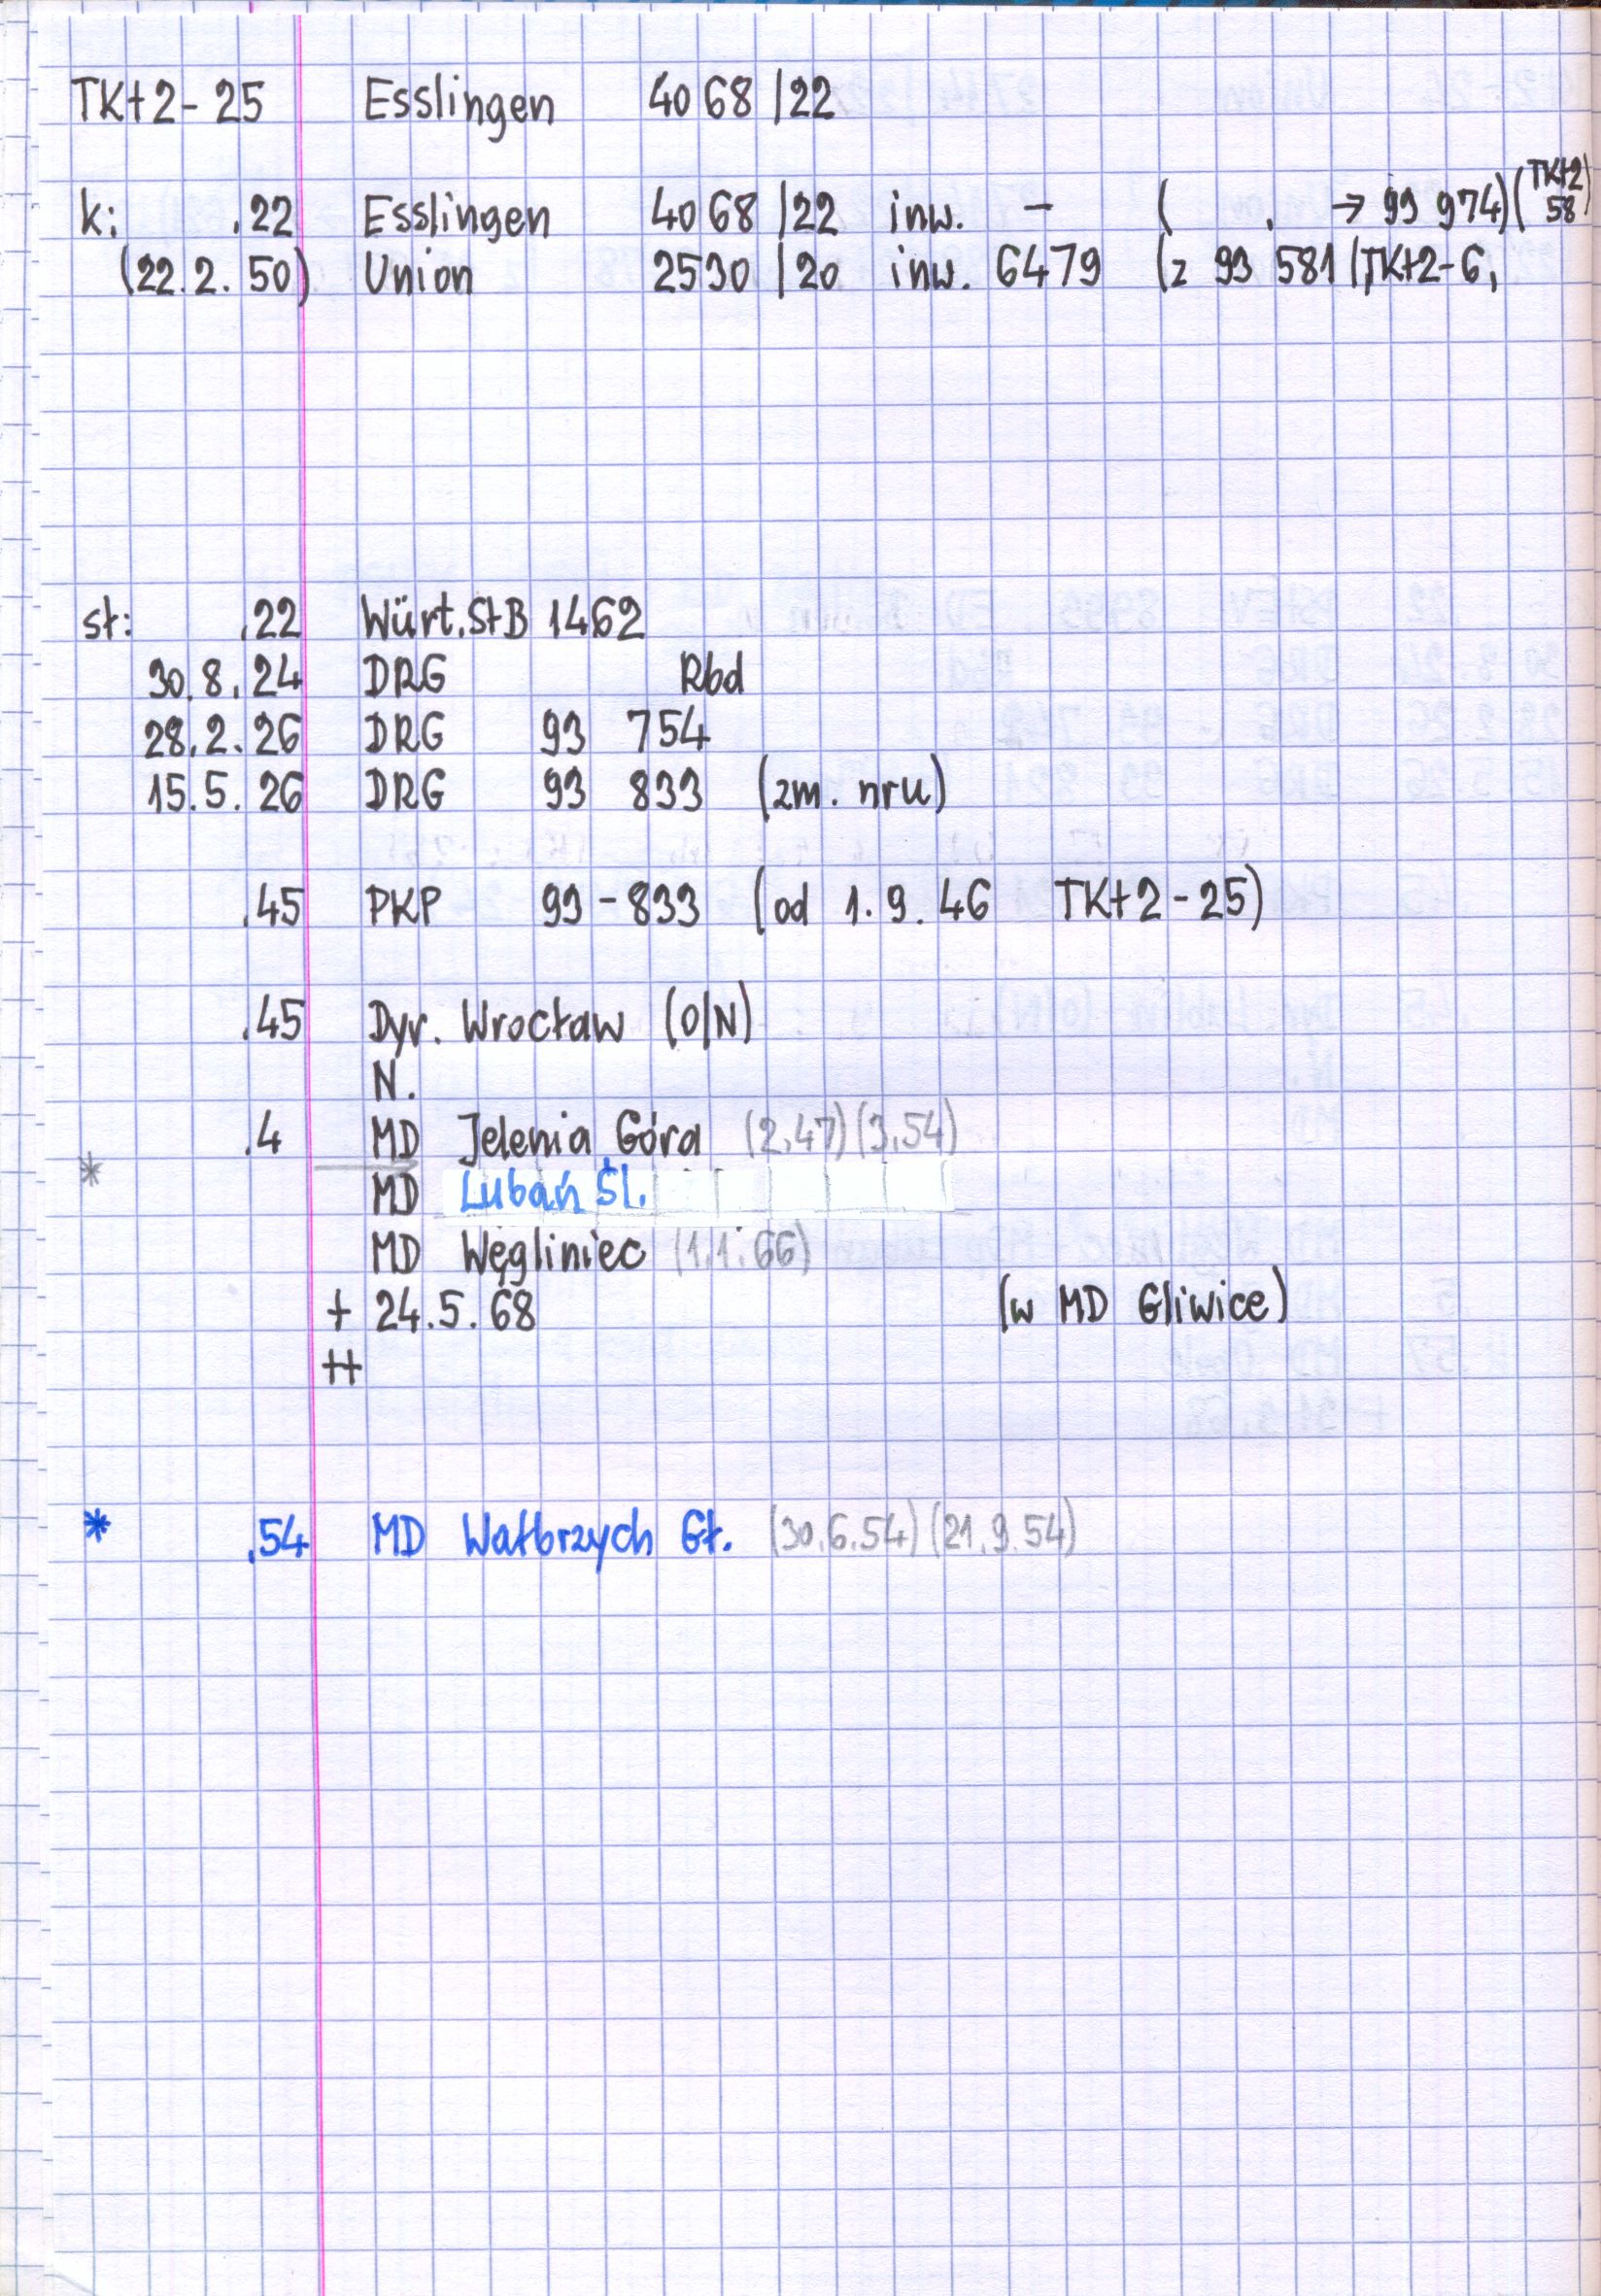 TKt2-25 Esslingen 4068/22
k: .22 Esslingen 4068/22 inw. - ( . → 93 974) (TKt2 58)
(22.2.50) Union 2530/20 inw. 6479 (z 93 581/TKt2-6,
st: .22 Würt.StB 1462
30.8.24 DRG Rbd
28.2.26 DRG 93 754
15.5.26 DRG 93 833 (zm. nru)
.45 PKP 93-833 (od 1.9.46 TKt2-25)
.45 Dyr. Wrocław (O/N)
N.
.4 MD Jelenia Góra (2.47) (3.54)
*
MD Lubań Śl.
MD Węgliniec (1.1.66)
+ 24.5.68 (w MD Gliwice)
++
* .54 MD Wałbrzych Gł. (30.6.54) (21.9.54)